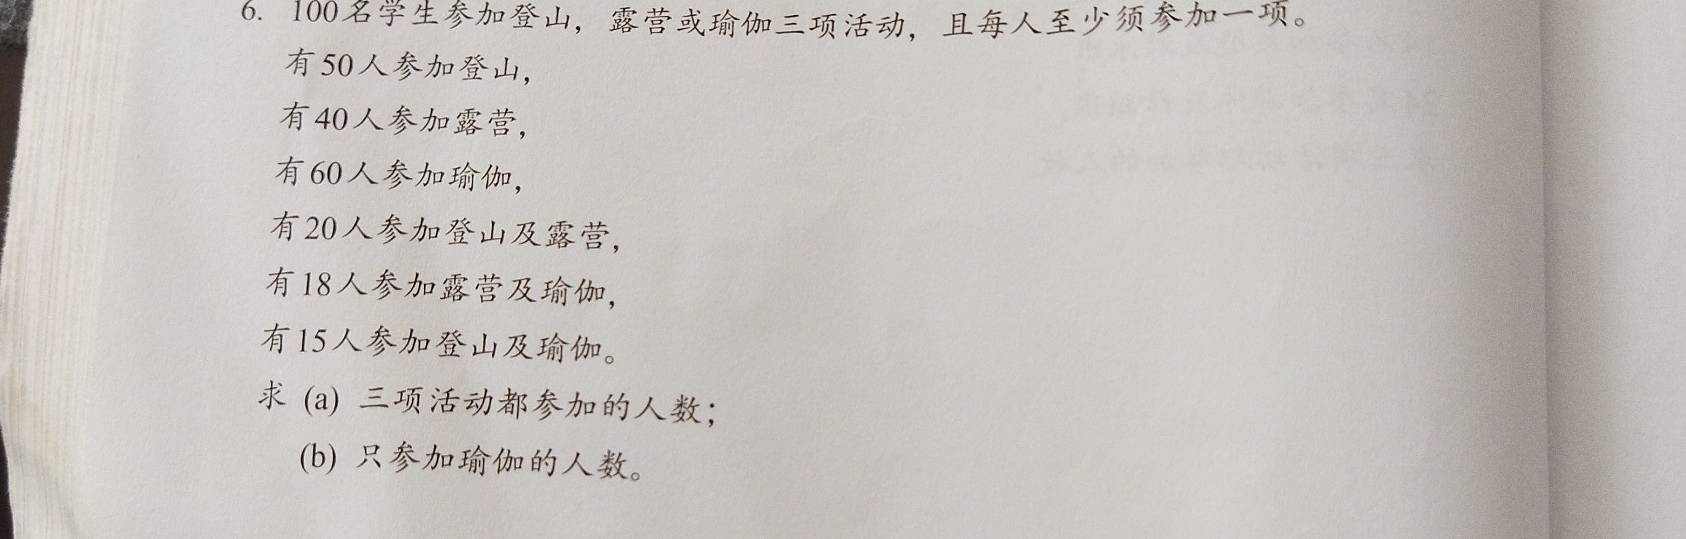 6. 100名学生参加登山，露营或瑜伽三项活动，且每人至少须参加一项。
有50人参加登山，
有40人参加露营，
有60人参加瑜伽，
有20人参加登山及露营，
有18人参加露营及瑜伽，
有15人参加登山及瑜伽。
求 (a) 三项活动都参加的人数；
(b) 只参加瑜伽的人数。